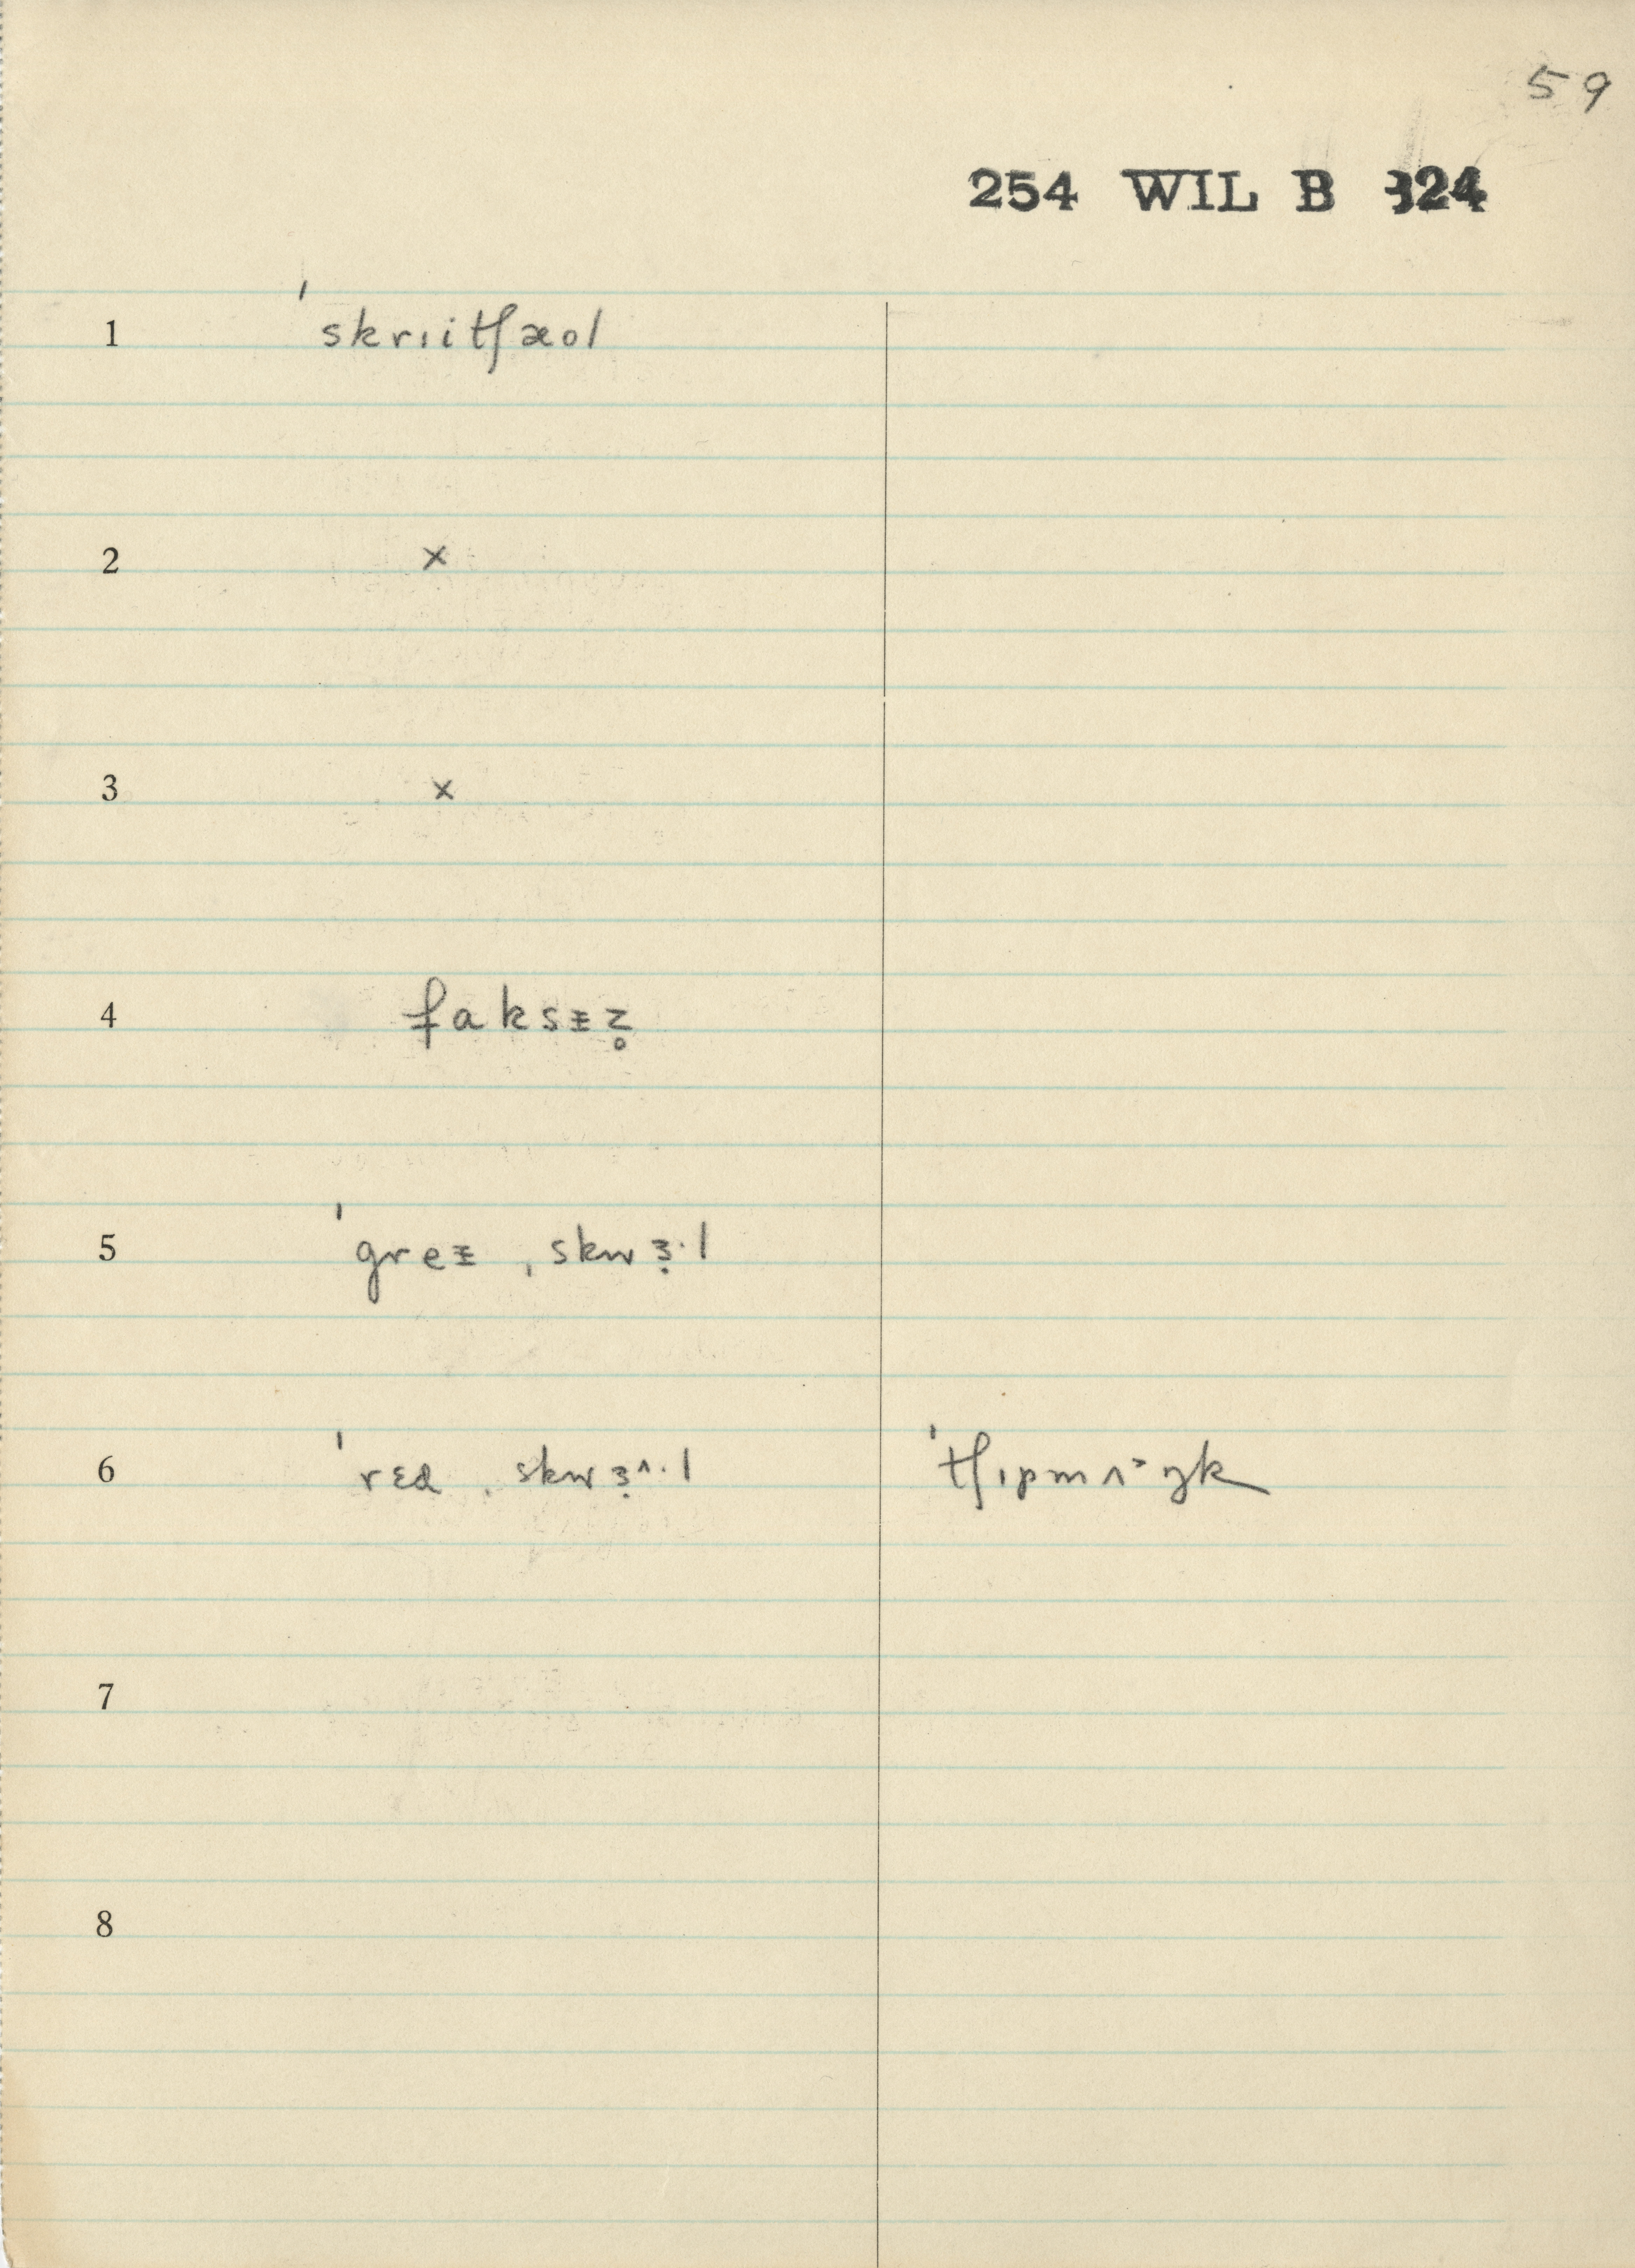 59
254 WIL B 324
1 ˈskrɪitʃæol
2 ×
3 ×
4 faksɪz̥
5 ˈgreɪ ˌskwɜ̣·l
6 ˈrɛd ˌskwɜ̣^·l ˈtʃɪpmʌ˃ŋk
7
8